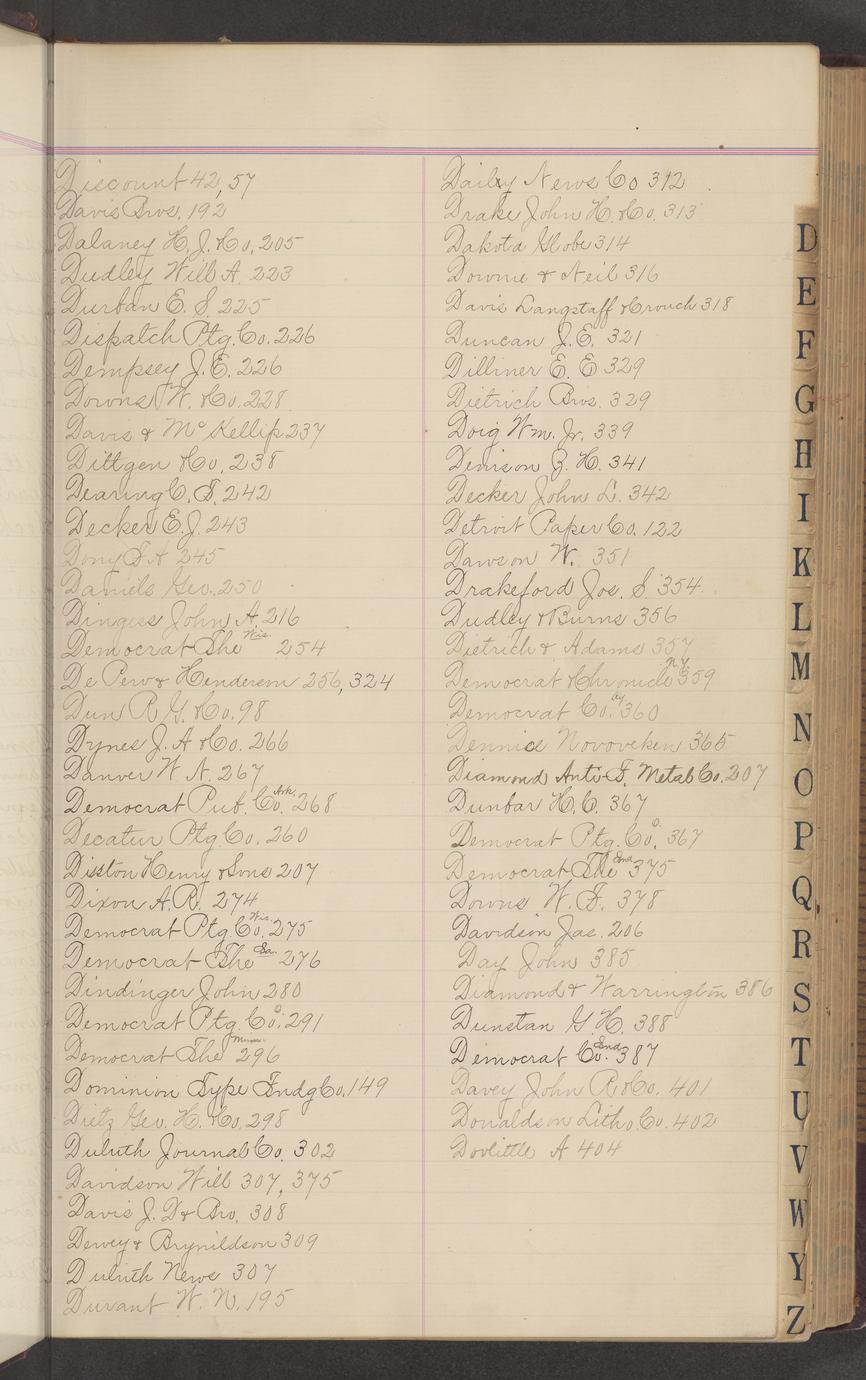 Discount 42, 57
Davis Bros. 192
Dalaney H. J. & Co. 205
Dudley Will A. 223
Durban E. S. 225
Dispatch Ptg. Co. 226
Dempsey J. E. 226
Downs W. & Co. 228
Davis & McKellip 237
Dittgen & Co. 238
Dearing C. S. 242
Decker E. J. 243
Dony S A 245
Daniels Geo. 250
Dingess John A. 216
Democrat The Wis. 254
De Pew & Henderson 256, 324
Dun R. G. & Co. 98
Dynes J. A & Co. 266
Danver W. N. 267
Democrat Pub. Co. Ark. 268
Decatur Ptg Co. 260
Disston Henry & Sons 207
Dixon A. R. 274
Democrat Ptg. Co. Wis. 275
Democrat The Ga. 276
Dindinger John 280
Democrat Ptg. Co. O. 291
Democrat The 296
Dominion Type Fndg Co. 149
Dietz Geo. H. & Co. 298
Duluth Journal Co. 302
Davidson Will 307, 375
Davis J. D & Bro. 308
Dewey & Brynildson 309
Duluth News 307
Durant W. N. 195
Daily News Co 312
Drake John H. & Co. 313
Dakota Globe 314
Downie & Neil 316
Davis Langstaff & Crouch 318
Duncan J. E. 321
Dilliner E. E 329
Dietrich Bros. 329
Doig Wm. Jr. 339
Denison J. H. 341
Decker John L. 342
Detroit Paper Co. 122
Dawson W. 351
Drakeford Jos. S. 354
Dudley & Burns 356
Dietrich & Adams 357
Democrat & Chronicle N.Y. 359
Democrat Co. 360
Dennice Novoveken 365
Diamond Anti-F. Metal Co. 207
Dunbar H. C. 367
Democrat Ptg. Co. O. 367
Democrat The Ind 375
Downs W. F. 378
Davidson Jas. 206
Day John 385
Diamond & Warrington 386
Dunstan G. H. 388
Democrat Co. Ind 387
Davey John R & Co. 401
Donaldson Litho Co. 402
Dovlittle A 404
D
E
F
G
H
I
K
L
M
N
O
P
Q
R
S
T
U
V
W
Y
Z